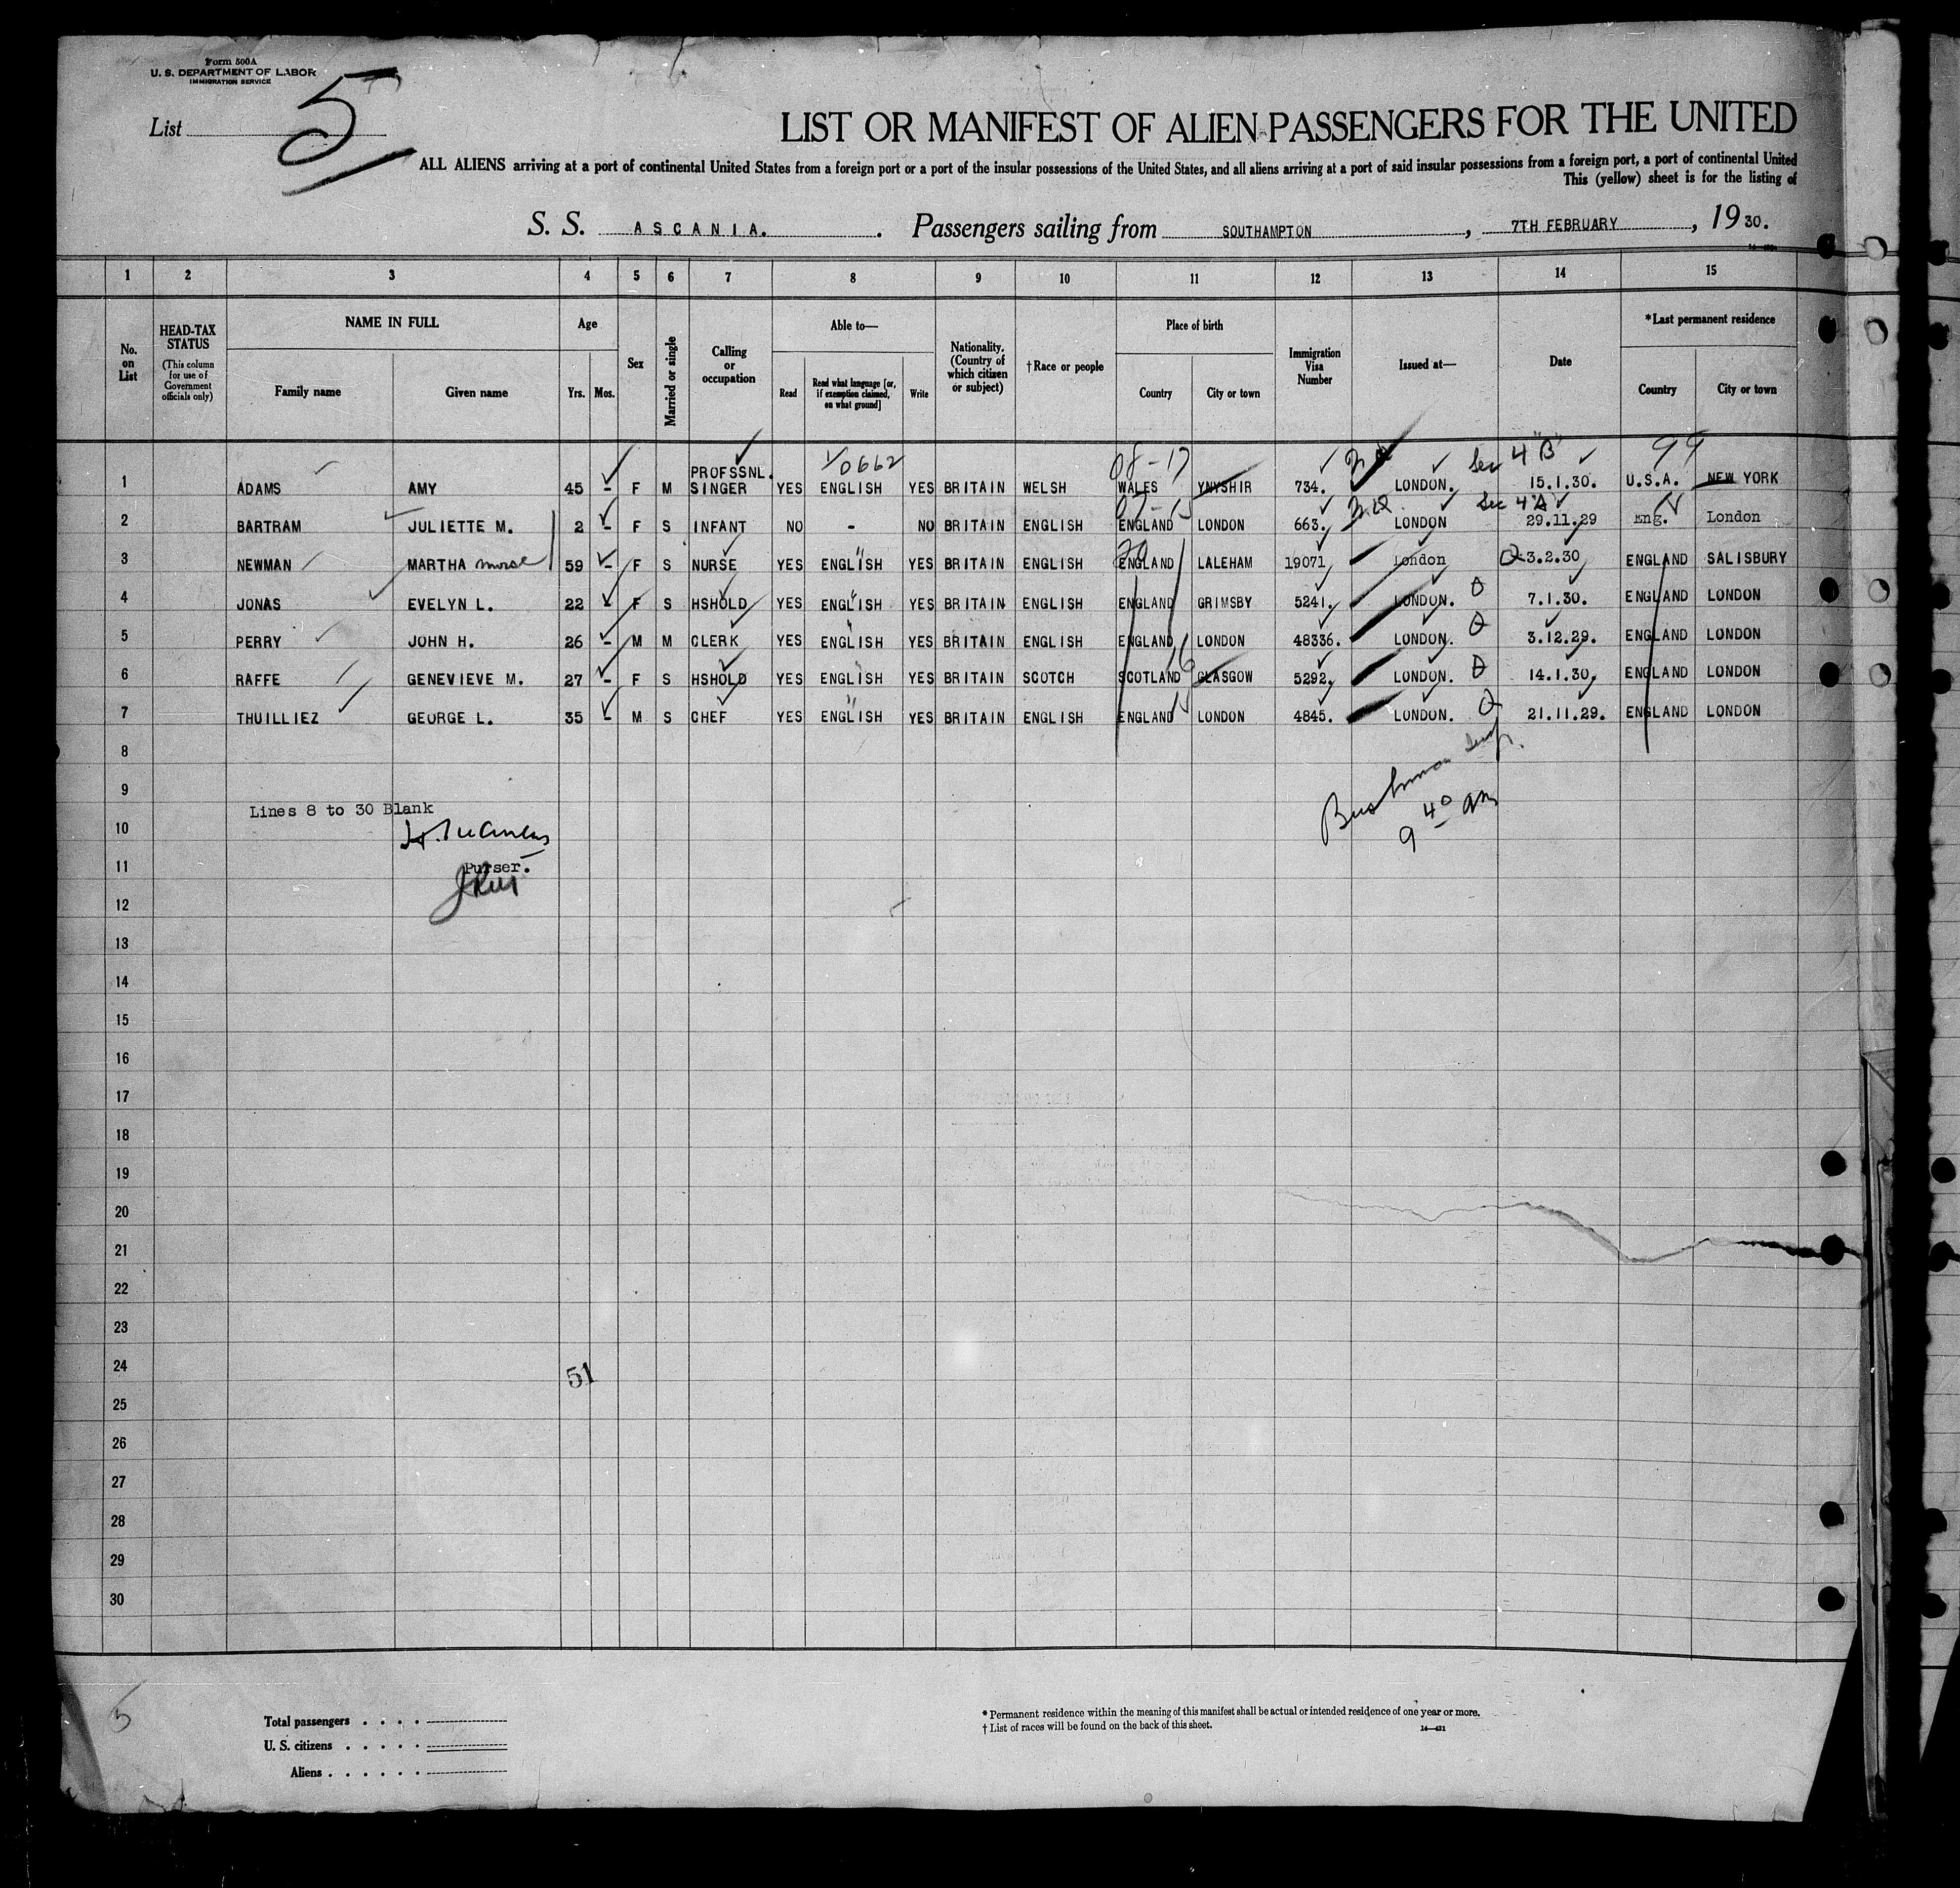 Form 500A
U. S. DEPARTMENT OF LABOR
IMMIGRATION SERVICE
List 5
LIST OR MANIFEST OF ALIEN PASSENGERS FOR THE UNITED
ALL ALIENS arriving at a port of continental United States from a foreign port or a port of the insular possessions of the United States, and all aliens arriving at a port of said insular possessions from a foreign port, a port of continental United
This (yellow) sheet is for the listing of
S. S. ASCANIA. Passengers sailing from SOUTHAMPTON, 7TH FEBRUARY, 1930.
1 2 3 4 5 6 7 8 9 10 11 12 13 14 15
No. on List
HEAD-TAX STATUS
(This column for use of Government officials only)
NAME IN FULL
Family name
Given name
Age
Yrs.
Mos.
Sex
Married or single
Calling or occupation
Able to—
Read
Read what language [or, if exemption claimed, on what ground]
Write
Nationality. (Country of which citizen or subject)
†Race or people
Place of birth
Country
City or town
Immigration Visa Number
Issued at—
Date
*Last permanent residence
Country
City or town
0662 08-17 Sec 4"B" 99
1 ADAMS AMY 45 - F M PROFSSNL. SINGER YES ENGLISH YES BRITAIN WELSH WALES YNYSHIR 734. LONDON. 15.1.30. U.S.A. NEW YORK
Sec 4"A"
2 BARTRAM JULIETTE M. 2 - F S INFANT NO - NO BRITAIN ENGLISH ENGLAND LONDON 663. LONDON 29.11.29 Eng. London
3 NEWMAN MARTHA nurse 59 - F S NURSE YES ENGLISH YES BRITAIN ENGLISH ENGLAND LALEHAM 19071 London 3.2.30 ENGLAND SALISBURY
4 JONAS EVELYN L. 22 - F S HSHOLD YES ENGLISH YES BRITAIN ENGLISH ENGLAND GRIMSBY 5241. LONDON. 7.1.30. ENGLAND LONDON
5 PERRY JOHN H. 26 - M M CLERK YES ENGLISH YES BRITAIN ENGLISH ENGLAND LONDON 48336. LONDON. 3.12.29. ENGLAND LONDON
6 RAFFE GENEVIEVE M. 27 - F S HSHOLD YES ENGLISH YES BRITAIN SCOTCH SCOTLAND GLASGOW 5292. LONDON. 14.1.30. ENGLAND LONDON
7 THUILLIEZ GEORGE L. 35 - M S CHEF YES ENGLISH YES BRITAIN ENGLISH ENGLAND LONDON 4845. LONDON. 21.11.29. ENGLAND LONDON
8
9
Lines 8 to 30 Blank
9 40 am
10
11
Purser.
12
13
14
15
16
17
18
19
20
21
22
23
24
51
25
26
27
28
29
30
5
Total passengers
U. S. citizens
Aliens
* Permanent residence within the meaning of this manifest shall be actual or intended residence of one year or more.
† List of races will be found on the back of this sheet.
14—431